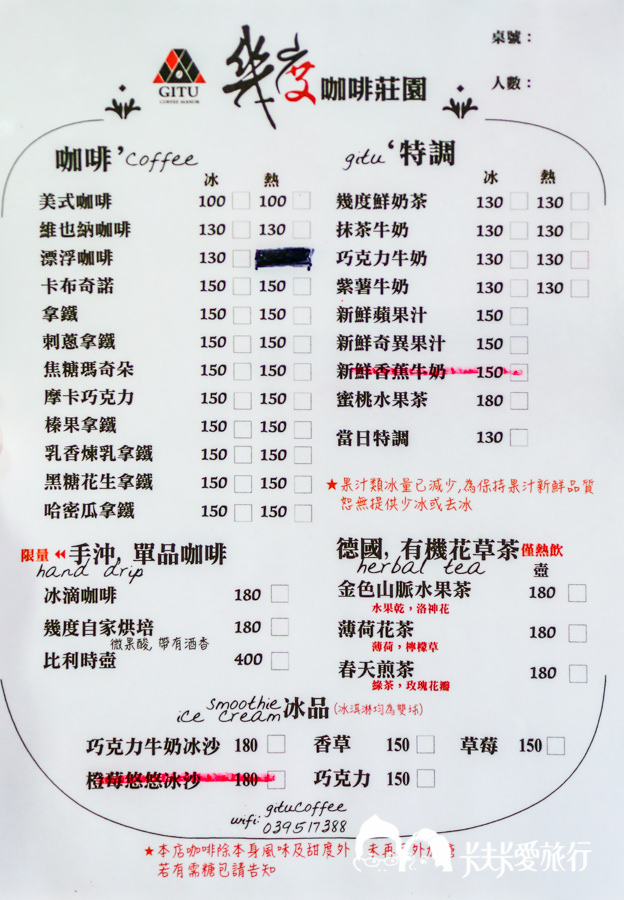 桌號：
GITU
COFFEE MANOR
幾度咖啡莊園
人數：
咖啡’coffee
冰 熱
美式咖啡 100 100
維也納咖啡 130 130
漂浮咖啡 130
卡布奇諾 150 150
拿鐵 150 150
刺蔥拿鐵 150 150
焦糖瑪奇朵 150 150
摩卡巧克力 150 150
榛果拿鐵 150 150
乳香煉乳拿鐵 150 150
黑糖花生拿鐵 150 150
哈密瓜拿鐵 150 150
gitu‘特調
冰 熱
幾度鮮奶茶 130 130
抹茶牛奶 130 130
巧克力牛奶 130 130
紫薯牛奶 130 130
新鮮蘋果汁 150
新鮮奇異果汁 150
新鮮香蕉牛奶 150
蜜桃水果茶 180
當日特調 130
★果汁類冰量已減少,為保持果汁新鮮品質
恕無提供少冰或去冰
限量 手沖, 單品咖啡
hand drip
冰滴咖啡 180
幾度自家烘培 180
微果酸, 帶有酒香
比利時壺 400
德國, 有機花草茶 僅熱飲
herbal tea 壺
金色山脈水果茶 180
水果乾，洛神花
薄荷花茶 180
薄荷，檸檬草
春天煎茶 180
綠茶，玫瑰花瓣
smoothie
ice cream 冰品 (冰淇淋均為雙球)
巧克力牛奶冰沙 180 香草 150 草莓 150
橙莓悠悠冰沙 180 巧克力 150
wifi: gitucoffee
039517388
★本店咖啡除本身風味及甜度外 未再 外加 糖
若有需糖包請告知
卡夫卡愛旅行